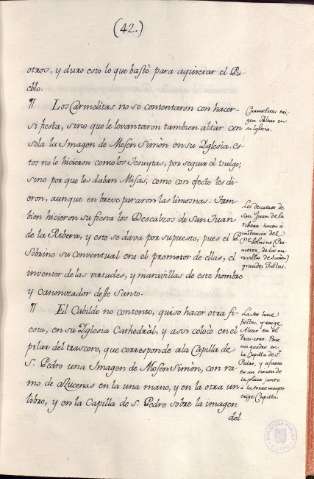 (42.)
otros, y duro esto lo que bastó para aquietar el Pu
eblo.
¶ Los Carmelitas no se contentaron con hacer
si fiesta, sino que le levantaron tambien altar con
sola la Imagen de Mosen Simon en su Yglesia. es
tos no lo hicieron como los Jesuytas, por seguir el vulgo;
sino por que les daban Misas, como con efecto les di
eron, aunque en breve pararon las limosnas. Tam
bien hicieron su fiesta los Descalzos de San Juan
de la Ribera, y esto se dava por supuesto, pues el P.
Sobrino su conventual era el promotor de ellas, el
inventor de las virtudes, y maravillas de este hombre
y Canonizador de Santo.
¶ El Cabildo no contento, quiso hacer otra fi
esta, en su Yglesia Cathedral, y assi coloco en el
pilar del trascoro, que corresponde a la Capilla de
S. Pedro una Imagen de Mosen Simon, con ra
mo de Azucenas en la una mano, y en la otra un
libro, y en la Capilla de S. Pedro sobre la imagen
del
Carmelitas
en
su Iglesia.
Los Descalzos de
San Juan de la
Ribera hacen
P. Sobrino
grandes fiestas.
Altar en el
trascoro
la Capilla de S.
Pedro
Capilla